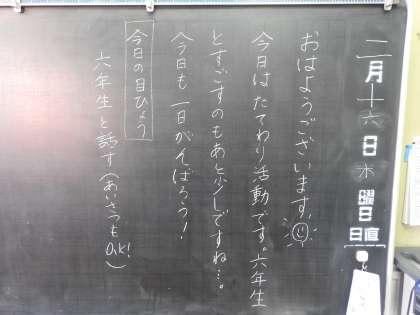 二月十六日木曜日
日直
おはようございます。
今日はたてわり活動です。六年生
とすごすのもあと少しですね…。
今日も一日がんばろう！
今日の目ひょう
六年生と話す(あいさつもOK!)